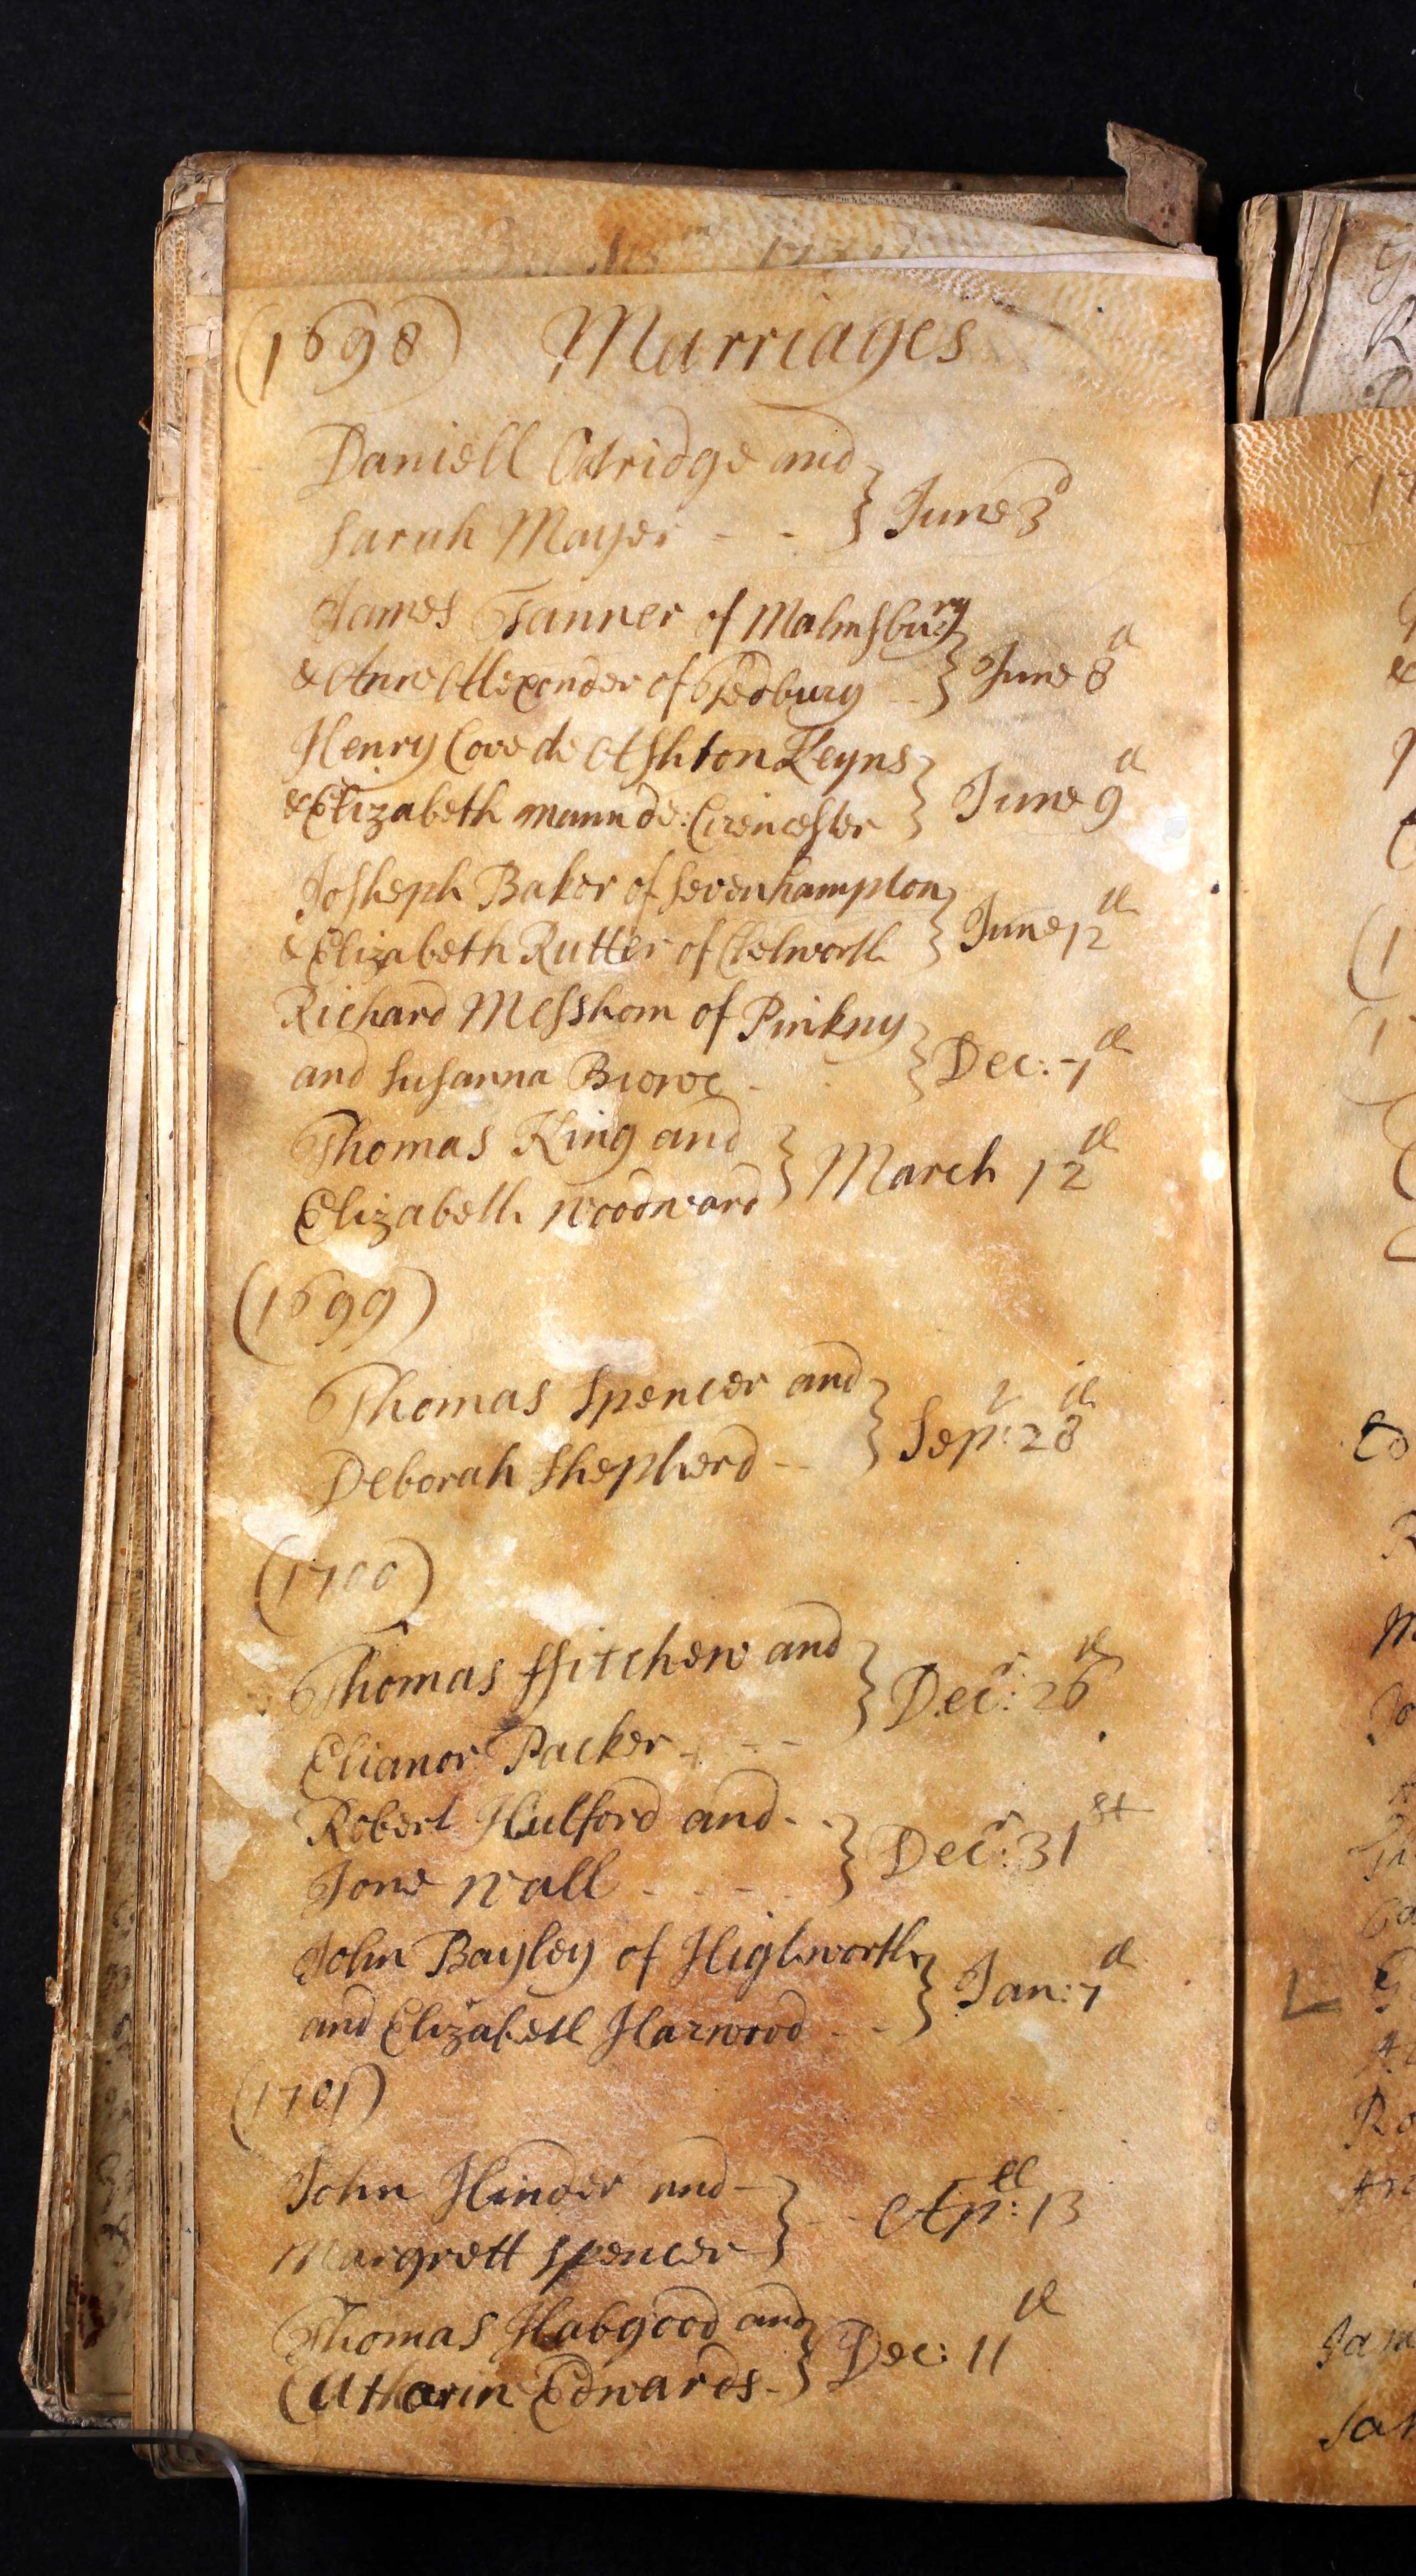 (1698) Marriages
Daniell Catridge and
Sarah Mayer - - } June 3d
James Tanner of Malmsbury
& Anne Alexander of Tedbury - } June 8th
Henry Cove de Ashton Keyns
& Elizabeth Mann de: Cirencester } June 9th
Josheph Baker of Sevenhampton
& Elizabeth Rutter of Chelworth } June 12th
Richard Messhom of Pinkny
and Susanna - } Dec: 7th
Thomas King and
Elizabeth Woodward } March 12th
(1699)
Thomas Spencer and
Deborah Shepherd -- } Sepr: 28th
(1700)
Thomas ffitchew and
Elianor Packer - - - } Decr: 26th
Robert Hulford and - -
Jone Wall - - - - } Decr: 31st
John Bayley of Highworth
and Elizabeth Harwood - - } Jan: 7th
(1701)
John Hinder and -
Margrett Spencer - } - - Apll: 13
Thomas Habgood and
Catharin Edwards - } Dec: 11th